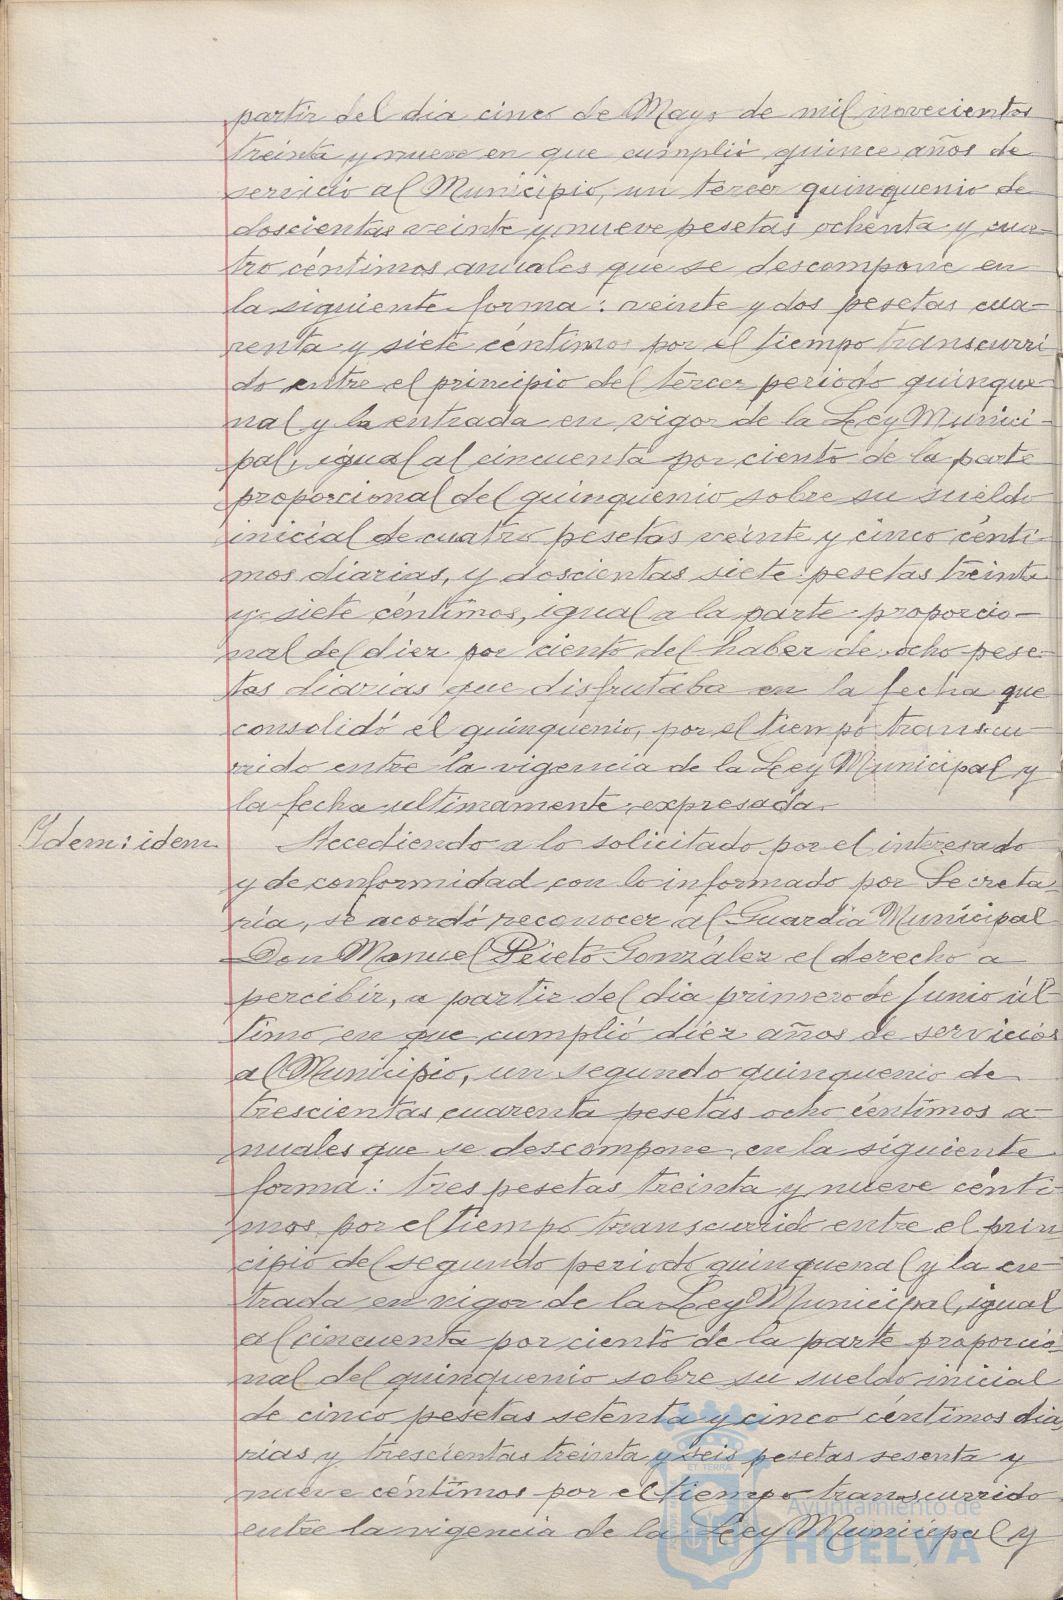 partir del dia cinco de Mayo de mil novecientos
treinta y nueve en que cumplió quince años de
servicio al Municipio, un tercer quinquenio de
doscientas veinte y nueve pesetas ochenta y cua-
tro céntimos anuales que se descompone en
la siguiente forma: veinte y dos pesetas cua-
renta y siete céntimos por el tiempo transcurri
do entre el principio del tercer periodo quinque-
nal y la entrada en vigor de la Ley Munici-
pal, igual al cincuenta por ciento de la parte
proporcional del quinquenio sobre su sueldo
inicial de cuatro pesetas veinte y cinco cénti-
mos diarias, y doscientas siete pesetas treinta
y siete céntimos, igual a la parte proporcio-
nal del diez por ciento del haber de ocho pese-
tas diarias que disfrutaba en la fecha que
consolidó el quinquenio, por el tiempo transcu-
rrido entre la vigencia de la Ley Municipal y
la fecha ultimamente expresada.
Idem: idem
Accediendo a lo solicitado por el interesado
y de conformidad con lo informado por Secreta-
ría, se acordó reconocer al Guardia Municipal
Don Manuel Prieto González el derecho a
percibir, a partir del dia primero de Junio úl-
timo en que cumplió diez años de servicios
al Municipio, un segundo quinquenio de
trescientas cuarenta pesetas ocho céntimos a-
nuales que se descompone en la siguiente
forma: tres pesetas treinta y nueve cénti-
mos por el tiempo transcurrido entre el prin
cipio del segundo periodo quinquenal y la en-
trada en vigor de la Ley Municipal, igual
al cincuenta por ciento de la parte proporcio-
nal del quinquenio sobre su sueldo inicial
de cinco pesetas setenta y cinco céntimos dia-
rias y trescientas treinta y seis pesetas sesenta y
nueve céntimos por el tiempo transcurrido
entre la vigencia de la Ley Municipal y
ET TERRÆ
Ayuntamiento de
HUELVA